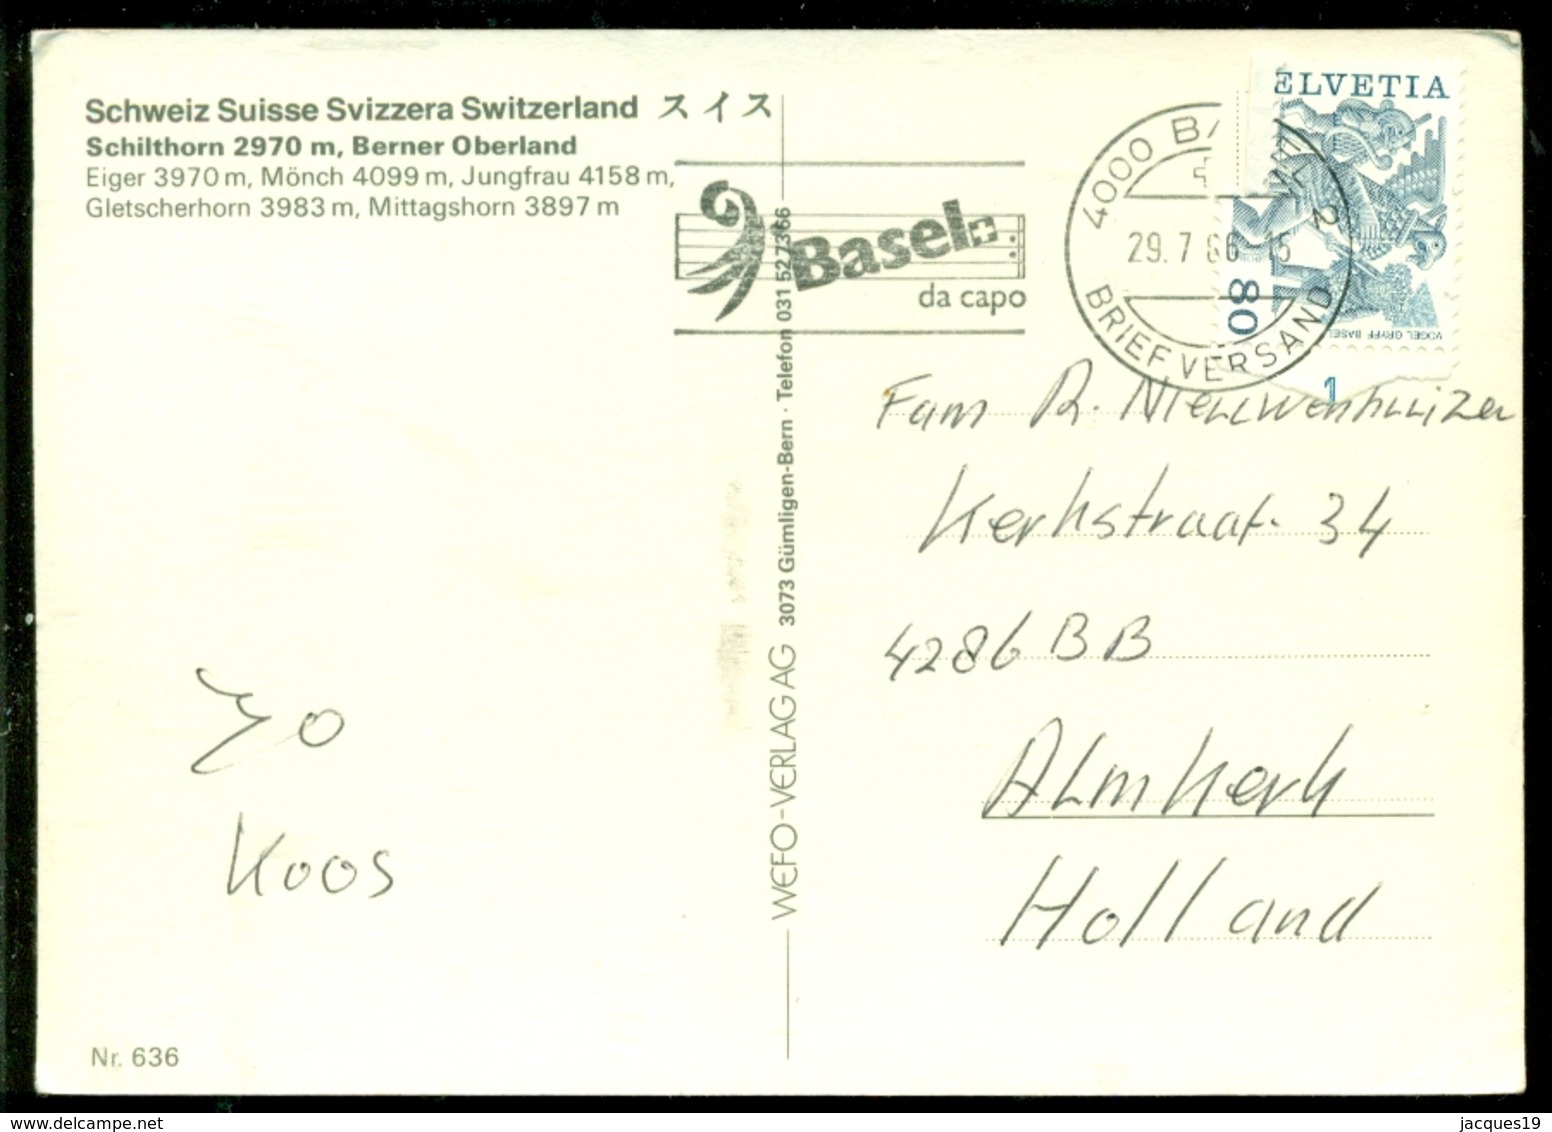 Schweiz Suisse Svizzera Switzerland スイス
Schilthorn 2970 m, Berner Oberland
Eiger 3970 m, Mönch 4099 m, Jungfrau 4158 m,
Gletscherhorn 3983 m, Mittagshorn 3897 m
Basel
da capo
4000 BA 2
29.7.86 15
BRIEFVERSAND
ELVETIA
80
VOGEL GRYFF BASEL
1
WEFO-VERLAG AG 3073 Gümligen-Bern · Telefon 031 527366
Fam R. Nieuwenhuizen
Kerkstraat 34
4286 BB
Almkerk
Holland
Jo
Koos
Nr. 636
jacques19